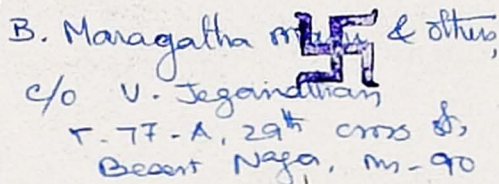 B. Maragatha & others,
c/o V. Jeganathan,
T-77-A, 29th cross St,
Besant Nagar, Ms-90